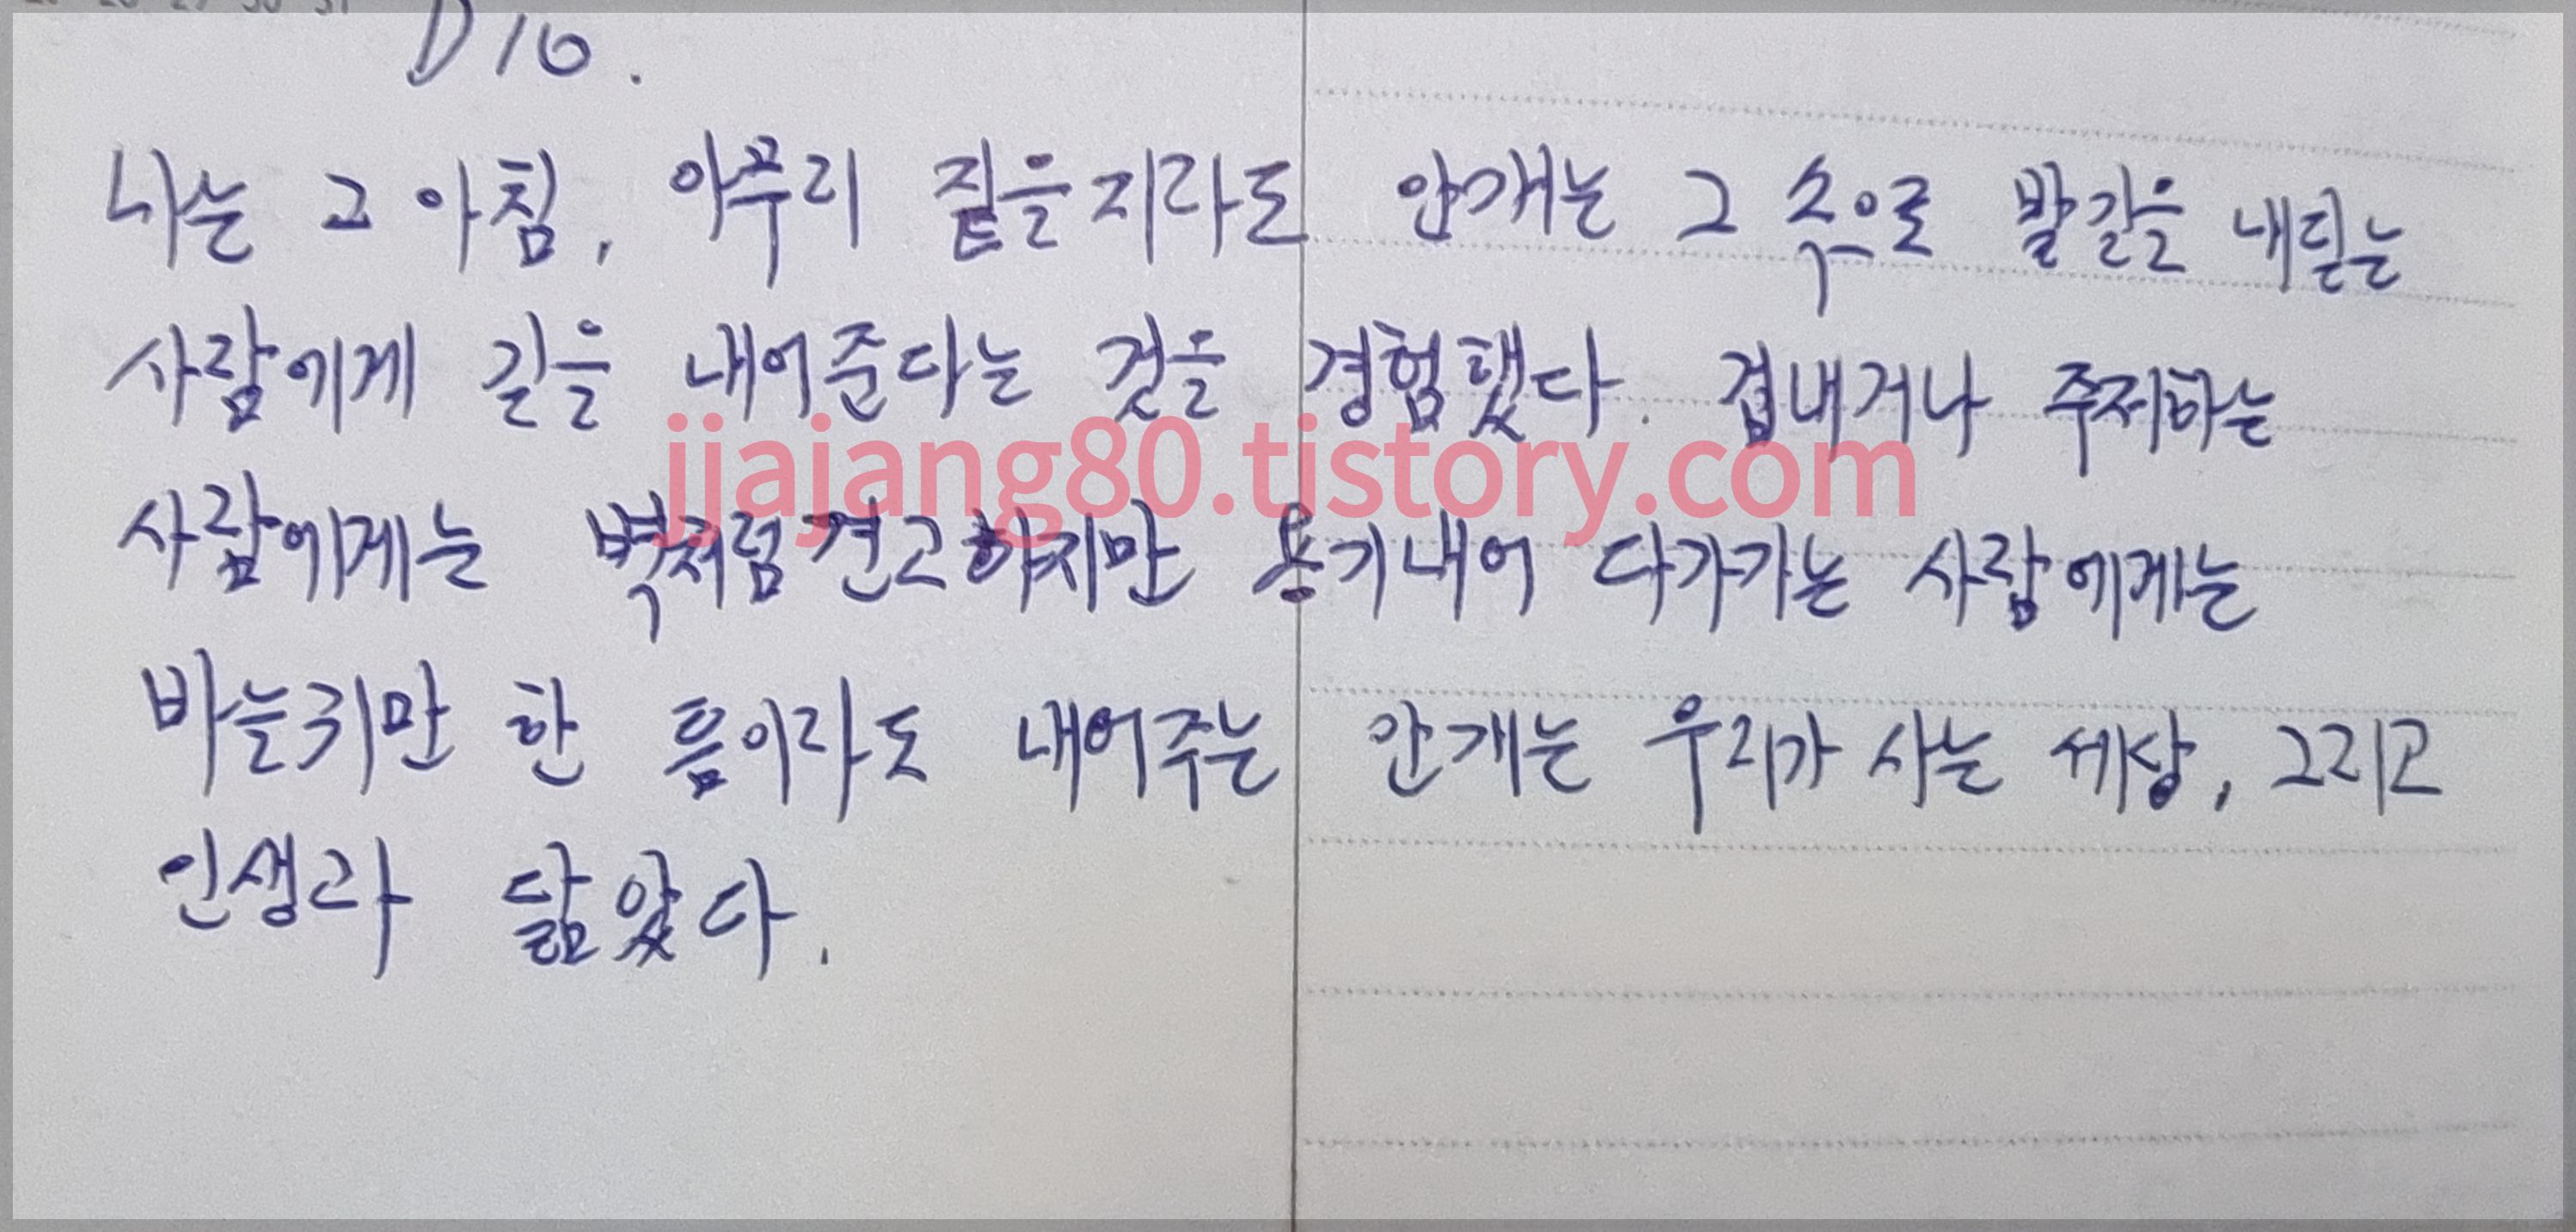 D16.
나는 그 아침, 아무리 짙을지라도 안개는 그 속으로 발길을 내딛는
사람에게 길을 내어준다는 것을 경험했다. 겁내거나 주저하는
jjajang80.tistory.com
사람에게는 벽처럼 견고하지만 용기내어 다가가는 사람에게는
바늘귀만 한 틈이라도 내어주는 안개는 우리가 사는 세상, 그리고
인생과 닮았다.